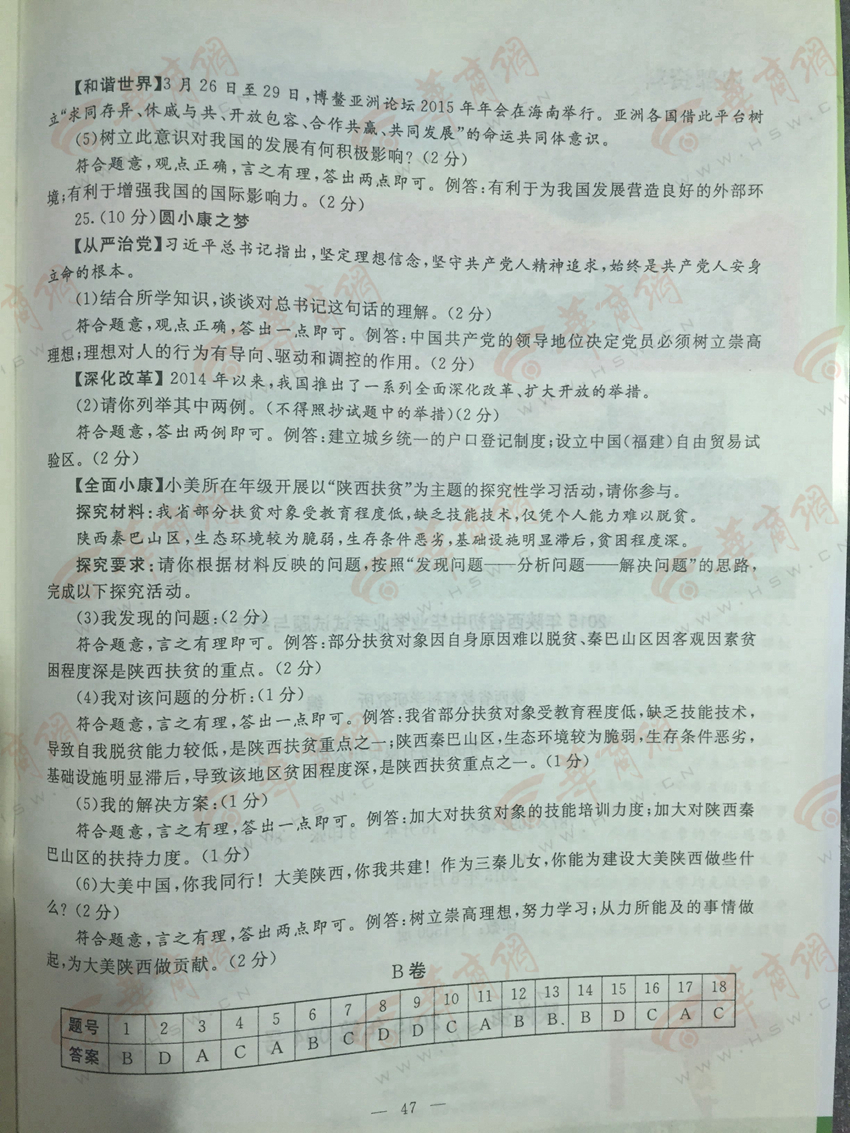 【和谐世界】3月26日至29日,博鳌亚洲论坛2015年年会在海南举行。亚洲各国借此平台树
立“求同存异、休戚与共、开放包容、合作共赢、共同发展”的命运共同体意识。
(5)树立此意识对我国的发展有何积极影响?(2分)
符合题意,观点正确,言之有理,答出两点即可。例答:有利于为我国发展营造良好的外部环
境;有利于增强我国的国际影响力。(2分)
25.(10分)圆小康之梦
【从严治党】习近平总书记指出,坚定理想信念,坚守共产党人精神追求,始终是共产党人安身
立命的根本。
(1)结合所学知识,谈谈对总书记这句话的理解。(2分)
符合题意,观点正确,答出一点即可。例答:中国共产党的领导地位决定党员必须树立崇高
理想;理想对人的行为有导向、驱动和调控的作用。(2分)
【深化改革】2014年以来,我国推出了一系列全面深化改革、扩大开放的举措。
(2)请你列举其中两例。(不得照抄试题中的举措)(2分)
符合题意,答出两例即可。例答:建立城乡统一的户口登记制度;设立中国(福建)自由贸易试
验区。(2分)
【全面小康】小美所在年级开展以“陕西扶贫”为主题的探究性学习活动,请你参与。
探究材料:我省部分扶贫对象受教育程度低,缺乏技能技术,仅凭个人能力难以脱贫。
陕西秦巴山区,生态环境较为脆弱,生存条件恶劣,基础设施明显滞后,贫困程度深。
探究要求:请你根据材料反映的问题,按照“发现问题——分析问题——解决问题”的思路,
完成以下探究活动。
(3)我发现的问题:(2分)
符合题意,言之有理即可。例答:部分扶贫对象因自身原因难以脱贫、秦巴山区因客观因素贫
困程度深是陕西扶贫的重点。(2分)
(4)我对该问题的分析:(1分)
符合题意,言之有理,答出一点即可。例答:我省部分扶贫对象受教育程度低,缺乏技能技术,
导致自我脱贫能力较低,是陕西扶贫重点之一;陕西秦巴山区,生态环境较为脆弱,生存条件恶劣,
基础设施明显滞后,导致该地区贫困程度深,是陕西扶贫重点之一。(1分)
(5)我的解决方案:(1分)
符合题意,言之有理,答出一点即可。例答:加大对扶贫对象的技能培训力度;加大对陕西秦
巴山区的扶持力度。(1分)
(6)大美中国,你我同行!大美陕西,你我共建!作为三秦儿女,你能为建设大美陕西做些什
么?(2分)
符合题意,言之有理,答出两点即可。例答:树立崇高理想,努力学习;从力所能及的事情做
起,为大美陕西做贡献。(2分)
B卷
题号 1 2 3 4 5 6 7 8 9 10 11 12 13 14 15 16 17 18
答案 B D A C A B C D D C A B B B D C A C
— 47 —
华商网
WWW.HSW.CN